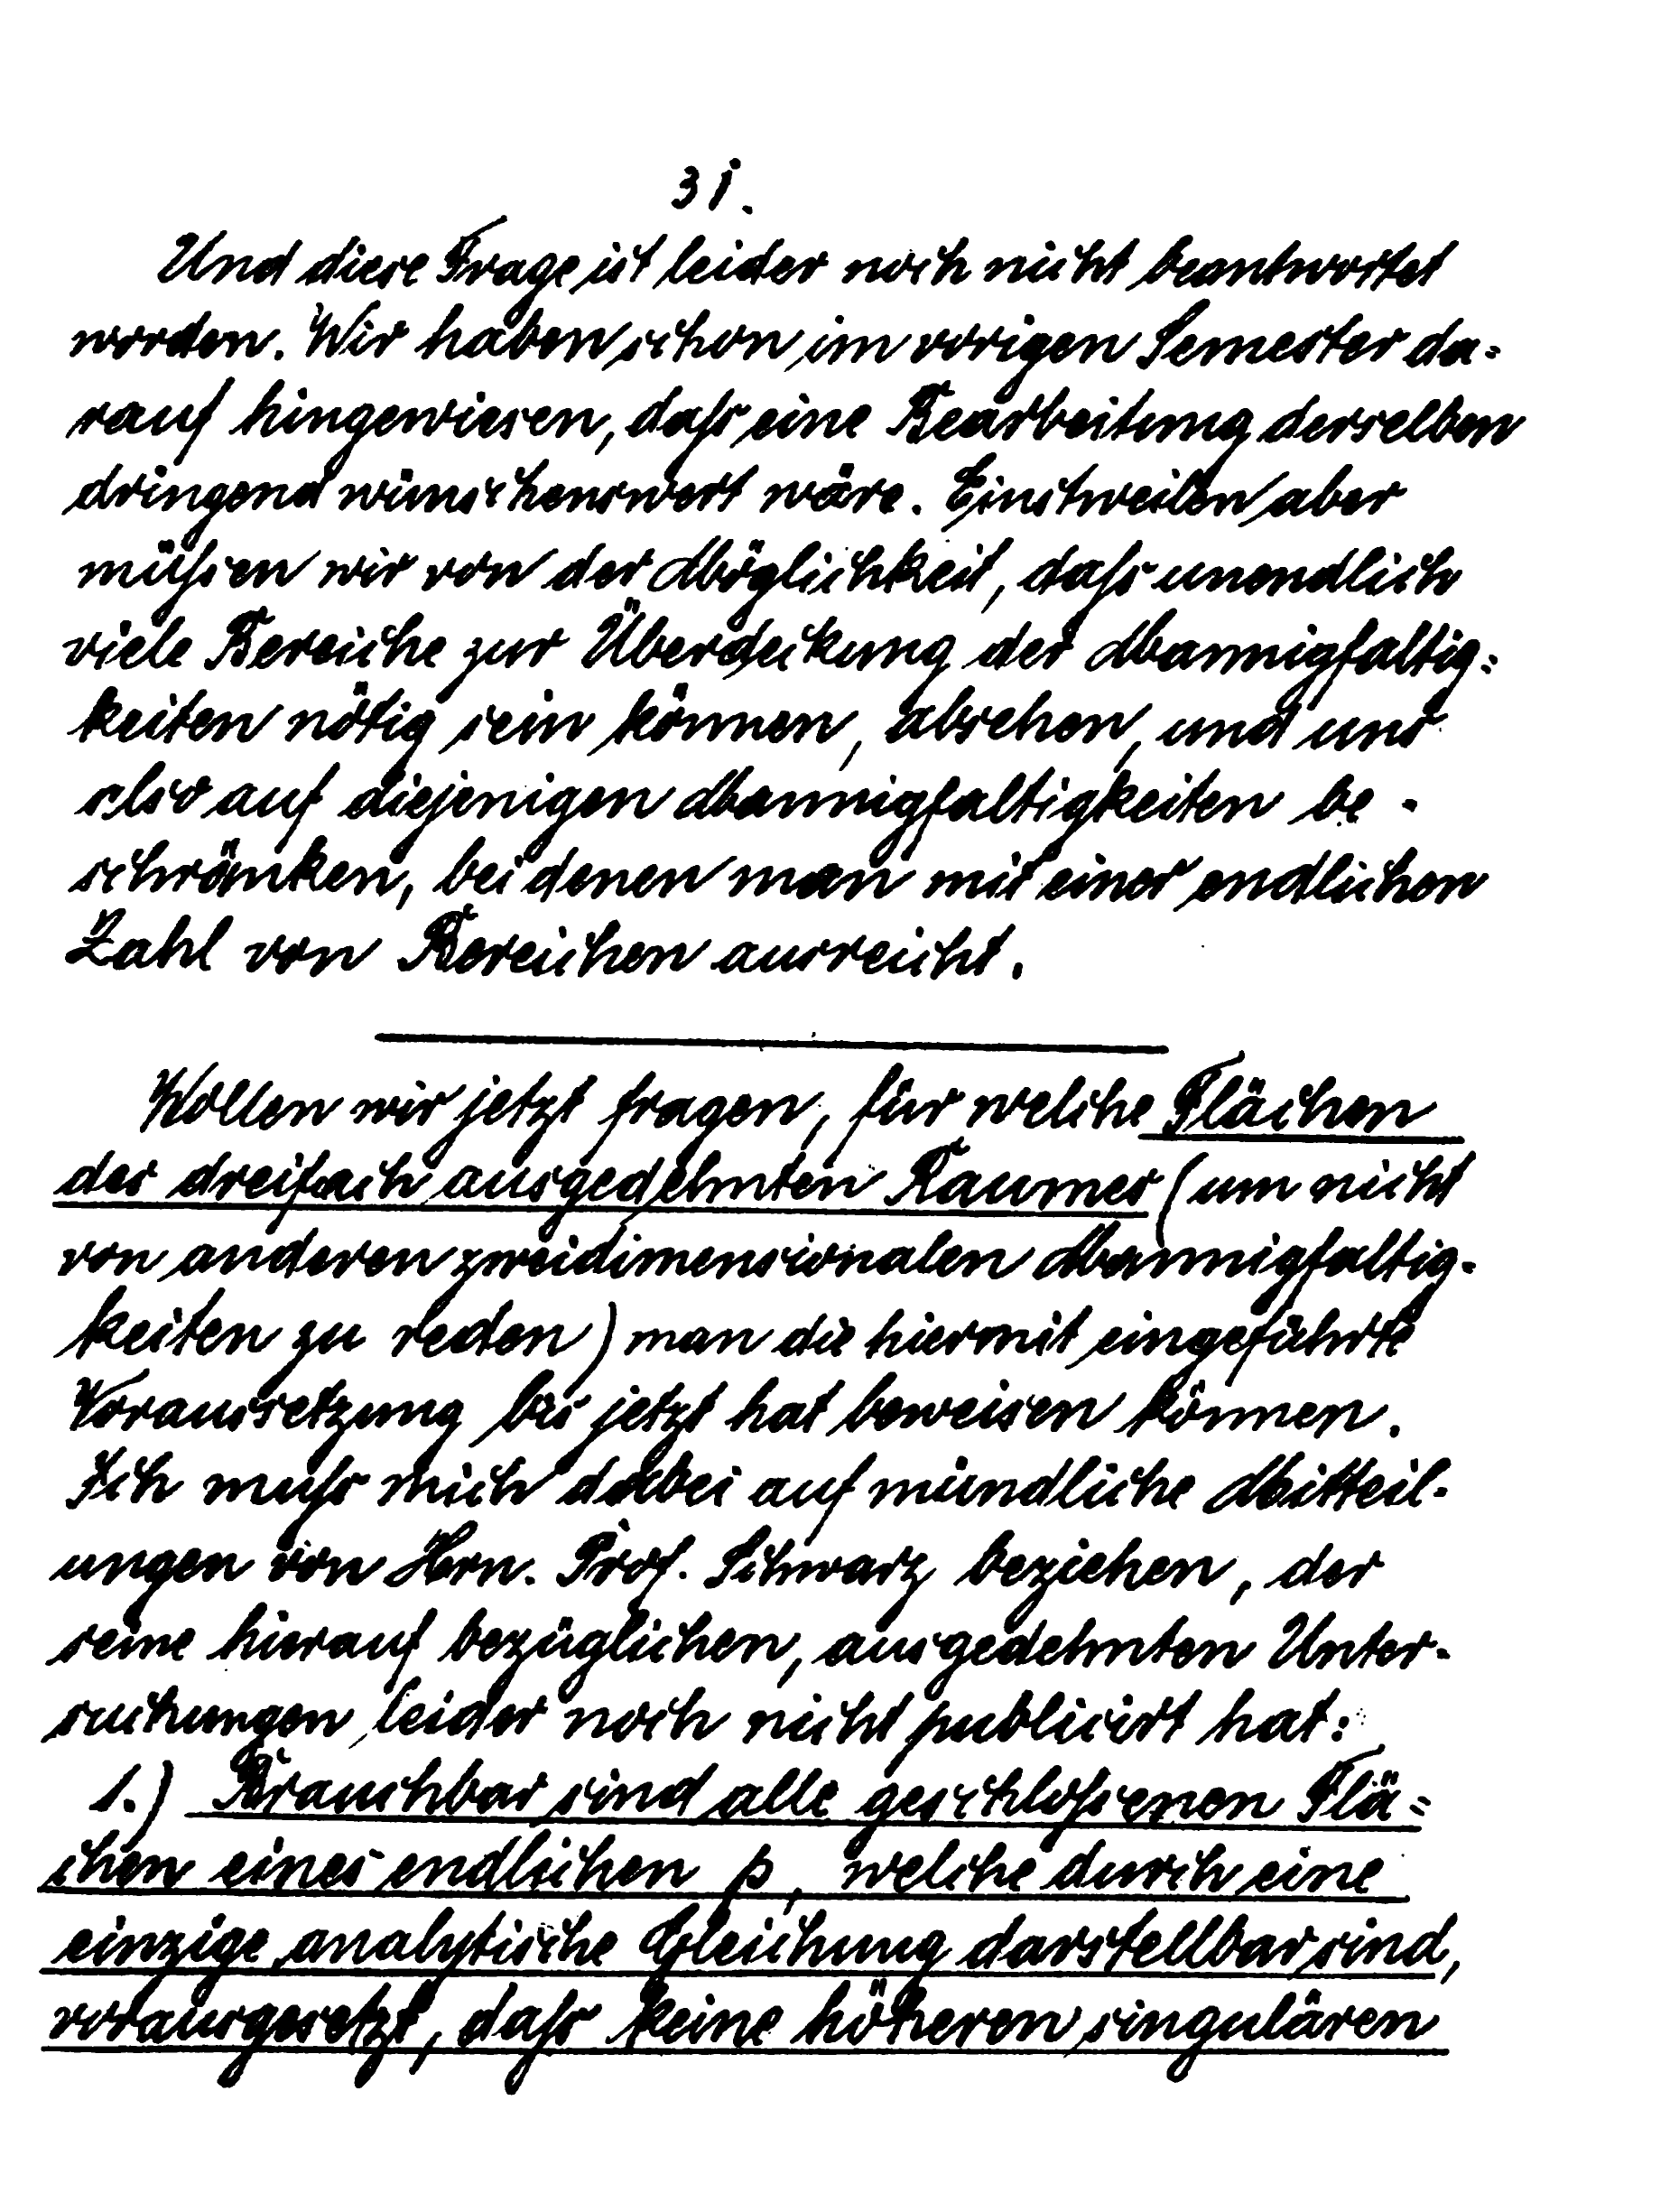 31.
Und diese Frage ist leider noch nicht beantwortet
worden. Wir haben schon im vorigen Semester da=
rauf hingewiesen, daſs eine Bearbeitung derselben
dringend wünschenswert wäre. Einstweilen aber
müſsen wir von der Möglichkeit, daſs unendlich
viele Bereiche zur Überdeckung der Mannigfaltig=
keiten nötig sein können, absehen, und uns
also auf diejenigen Mannigfaltigkeiten be-
schränken, bei denen man mit einer endlichen
Zahl von Bereichen ausreicht.
Wollen wir jetzt fragen, für welche Flächen
des dreifach ausgedehnten Raumes (um nicht
von anderen zweidimensionalen Mannigfaltig-
keiten zu reden) man die hiermit eingeführte
Voraussetzung bis jetzt hat beweisen können.
Ich muſs mich dabei auf mündliche Mitteil-
ungen von Hrn. Prof. Schwarz beziehen, der
seine hierauf bezüglichen, ausgedehnten Unter-
suchungen leider noch nicht publicirt hat:
1.) Brauchbar sind alle geschloſsenen Flä=
chen eines endlichen p, welche durch eine
einzige analytische Gleichung darstellbar sind,
vorausgesetzt, daſs keine höheren singulären